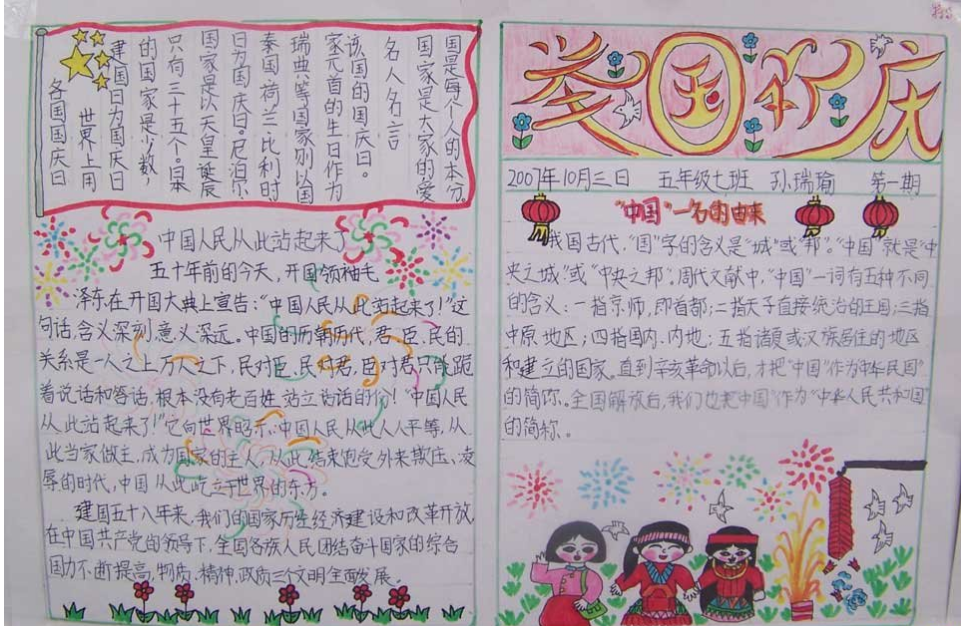 各国国庆日
世界上用
建国日为国庆日
的国家是少数,
只有三十五个。日本
国家是以天皇诞辰
日为国庆日。尼泊尔
泰国、荷兰、比利时
瑞典等国家则以国
家元首的生日作为
该国的国庆日。
名人名言
国家是大家的爱
国是每个人的本分。
中国人民从此站起来了
五十年前的今天,开国领袖毛
泽东在开国大典上宣告:“中国人民从此站起来了!”这
句话,含义深刻,意义深远。中国的历朝历代,君、臣、民的
关系是一人之上万人之下,民对臣、民对君,臣对君只能跪
着说话和答话,根本没有老百姓站立说话的份!“中国人民
从此站起来了!”它向世界昭示:中国人民从此人人平等,从
此当家做主,成为国家的主人,从此结束饱受外来欺压、凌
辱的时代,中国从此屹立于世界的东方。
建国五十八年来,我们的国家历经经济建设和改革开放
在中国共产党的领导下,全国各族人民团结奋斗国家的综合
国力不断提高,物质、精神、政质三个文明全面发展。
举国欢庆
2007年10月三日 五年级七班 孙瑞瑜 第一期
“中国”一名的由来
我国古代,“国”字的含义是“城”或“邦”。“中国”就是“中
央之城”或“中央之邦”。周代文献中,“中国”一词有五种不同
的含义:一指京师,即首都;二指天子直接统治的王国;三指
中原地区;四指国内、内地;五指诸夏或汉族居住的地区
和建立的国家。直到辛亥革命以后,才把“中国”作为“中华民国”
的简称。全国解放后,我们也把“中国”作为“中华人民共和国”
的简称。